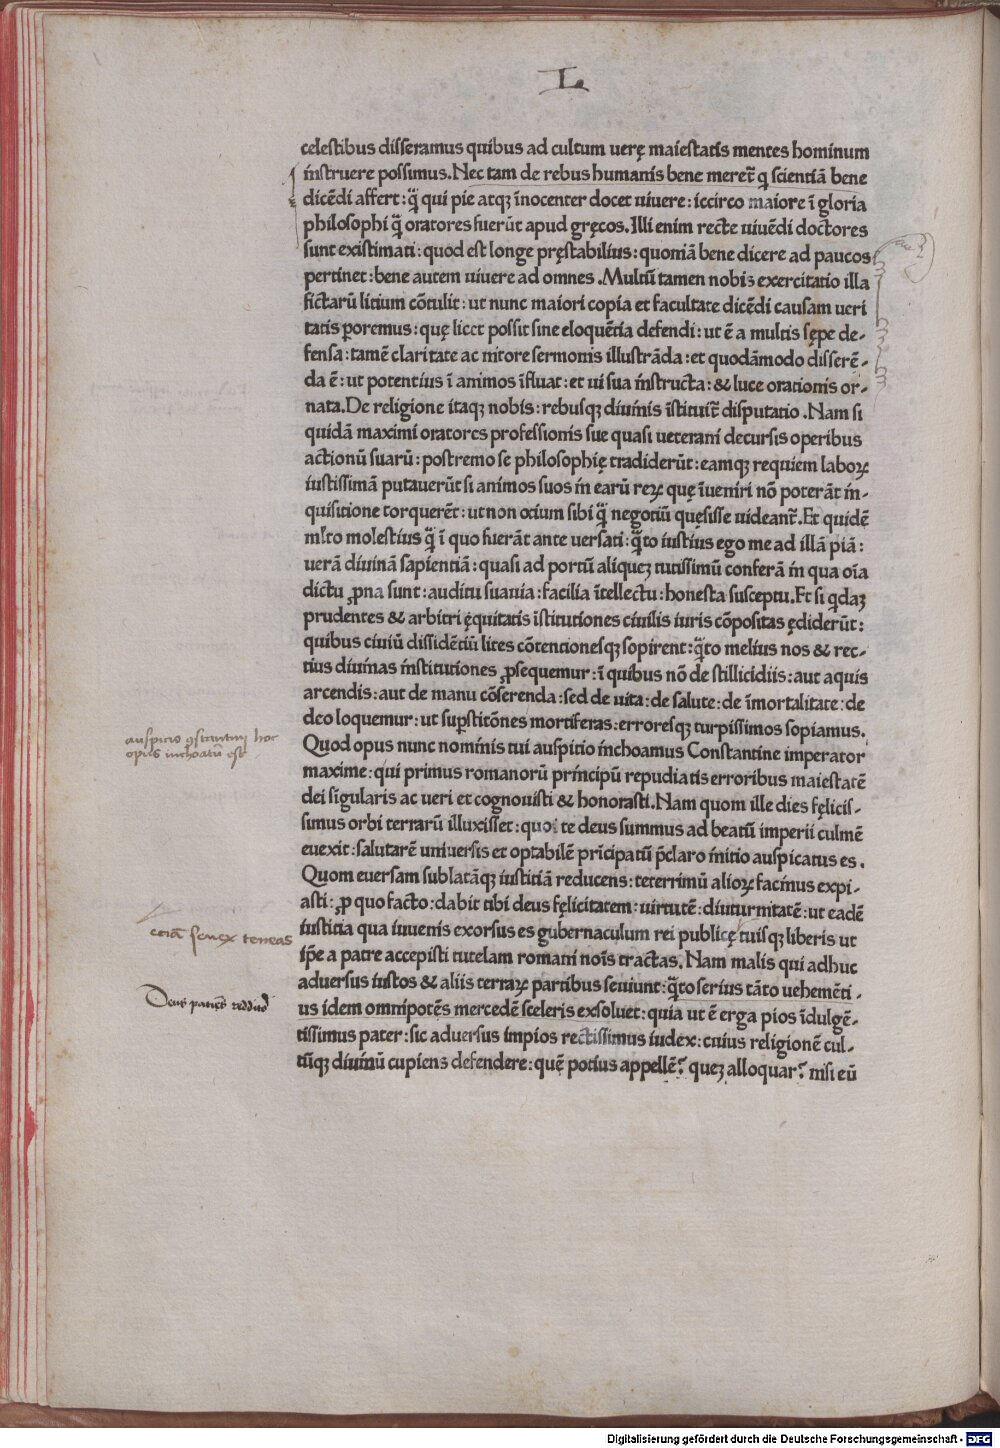 L
celestibus disseramus quibus ad cultum uerę maiestatis mentes hominum
instruere possimus. Nec tam de rebus humanis bene meret̄ q scientiā bene
dicēdi affert: q̄ qui pie atqꝫ īnocenter docet uiuere: iccirco maiore ī gloria
philosophi q̄ oratores fuerūt apud gręcos. Illi enim recte uiuēdi doctores
sunt existimati: quod est longe pręstabilius: quoniā bene dicere ad paucos
pertinet: bene autem uiuere ad omnes. Multū tamen nobis exercitatio illa
fictarū litium cōtulit: ut nunc maiori copia et facultate dicēdi causam ueri
tatis ꝑoremus: quę licet possit sine eloquētia defendi: ut ē a multis sępe de-
fensa: tamē claritate ac nitore sermonis illustrāda: et quodāmodo disserē-
da ē: ut potentius ī animos īfluat: et ui sua instructa: & luce orationis or-
nata. De religione itaqꝫ nobis: rebusqꝫ diuinis īstituit̄ disputatio. Nam si
quidā maximi oratores professionis sue quasi ueterani decursis operibus
actionū suarū: postremo se philosophię tradiderūt: eamqꝫ requiem laboꝝ
iustissimā putauerūt si animos suos in earū reꝝ quę īueniri nō poterāt in-
quisitione torquerēt: ut non otium sibi q̄ negotiū quęsisse uideant̄. Et quidē
ml̄to molestius q̄ ī quo fuerāt ante uersati: q̄to iustius ego me ad illā piā:
uerā diuinā sapientiā: quasi ad portū aliqueꝫ tutissimū conferā in qua oīa
dictu ꝓna sunt: auditu suauia: facilia ītellectu: honesta susceptu. Et si qdaꝫ
prudentes & arbitri ęquitatis īstitutiones ciuilis iuris cōpositas ędiderūt:
quibus ciuiū dissidētiū lites cōtentionesqꝫ sopirent: q̄to melius nos & rec-
tius diuinas institutiones ꝓsequemur: ī quibus nō de stillicidiis: aut aquis
arcendis: aut de manu cōserenda: sed de uita: de salute: de īmortalitate: de
deo loquemur: ut suꝑstitōnes mortiferas: erroresqꝫ turpissimos sopiamus.
Quod opus nunc nominis tui auspitio inchoamus Constantine imperator
maxime: qui primus romanorū principū repudiatis erroribus maiestatē
dei sīgularis ac ueri et cognouisti & honorasti. Nam quom ille dies fęlicis-
simus orbi terrarū illuxisset: quo te deus summus ad beatū imperii culmē
euexit: salutarē uniuersis et optabilē prīcipatū p̄claro initio auspicatus es.
Quom euersam sublatāqꝫ iustitiā reducens: teterrimū alioꝝ facinus expi-
asti: ꝓ quo facto: dabit tibi deus fęlicitatem: uirtutē: diuturnitatē: ut eadē
iustitia qua iuuenis exorsus es gubernaculum rei publicę tuisqꝫ liberis ut
ip̄e a patre accepisti tutelam romani noīs tractas. Nam malis qui adhuc
aduersus iustos & aliis terraꝝ partibus seuiunt: q̄to serius tāto uehemēti-
us idem omnipotēs mercedē sceleris exsoluet: quia ut ē erga pios īdulgē-
tissimus pater: sic aduersus impios rectissimus iudex: cuius religionē cul-
tūqꝫ diuinū cupiens defendere: quē potius appellē? queꝫ alloquar? nisi eū
opus inchoatū est
etiā senex teneas
Digitalisierung gefördert durch die Deutsche Forschungsgemeinschaft - DFG